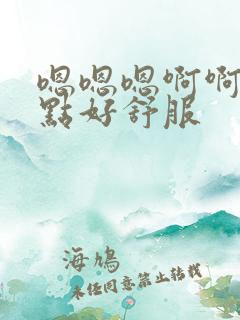 嗯嗯嗯啊啊
點好舒服
海鳩
未经同意禁止转载